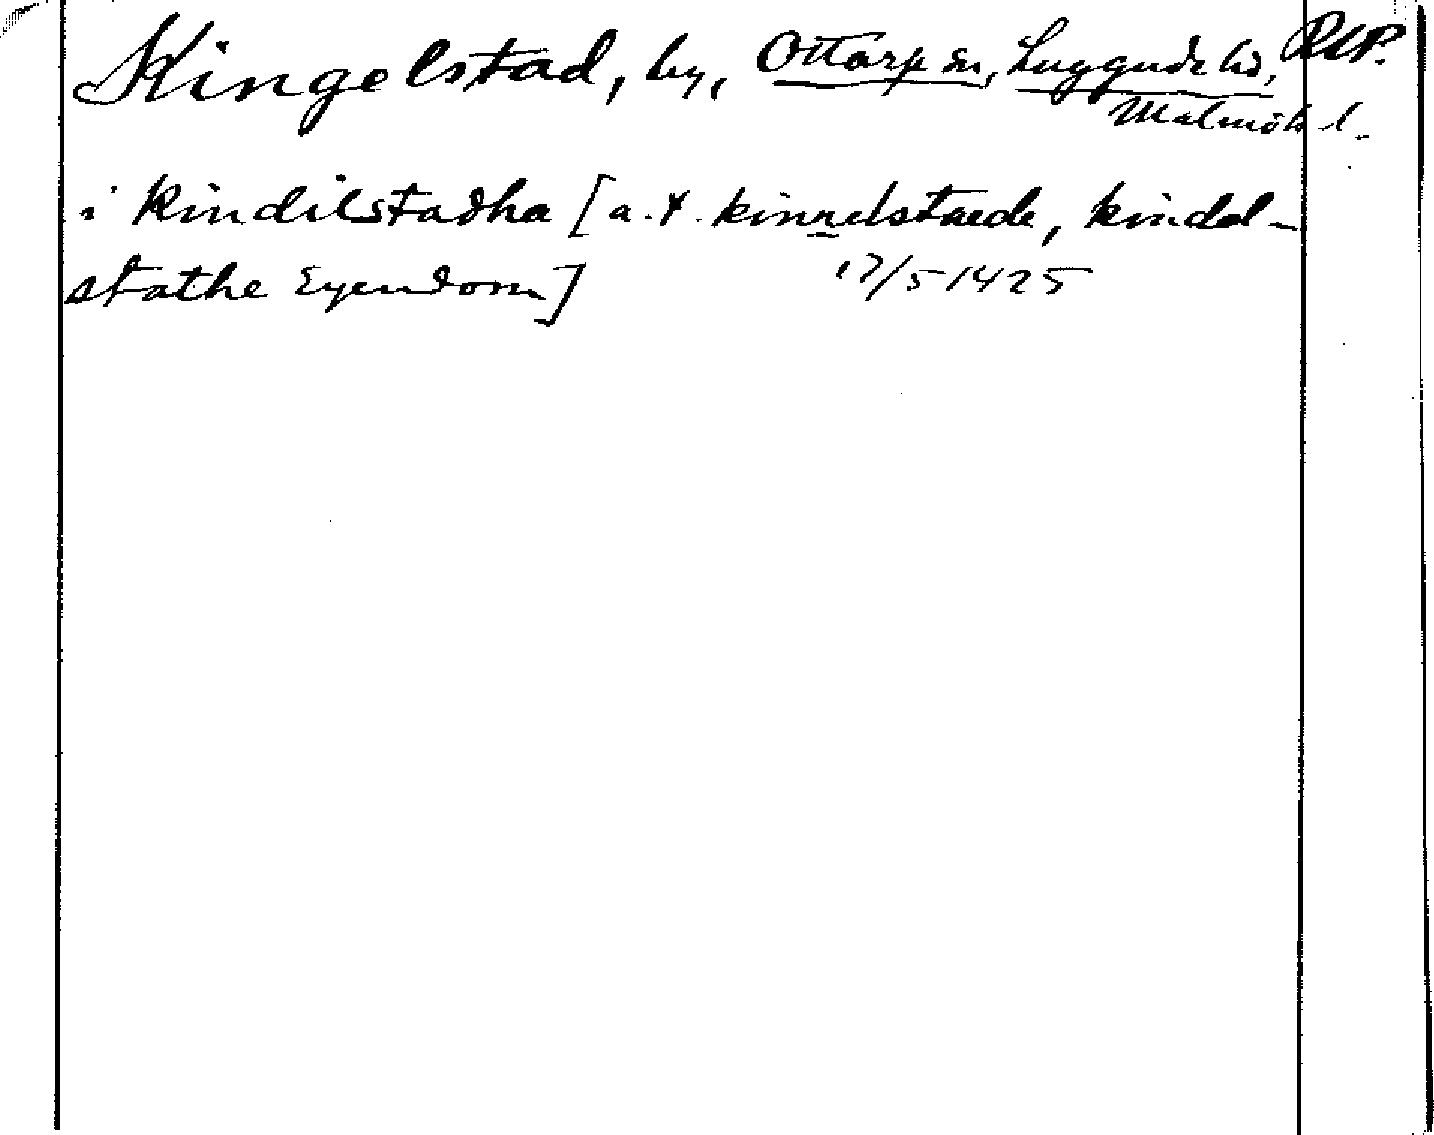 Kingelstad, by, Ottarp sn, Luggude hd, RUP.
Malmöh l.
i kindilstadha [a. t. kinnelstaede, kindel-
stathe Eyendom] 17/5 1425